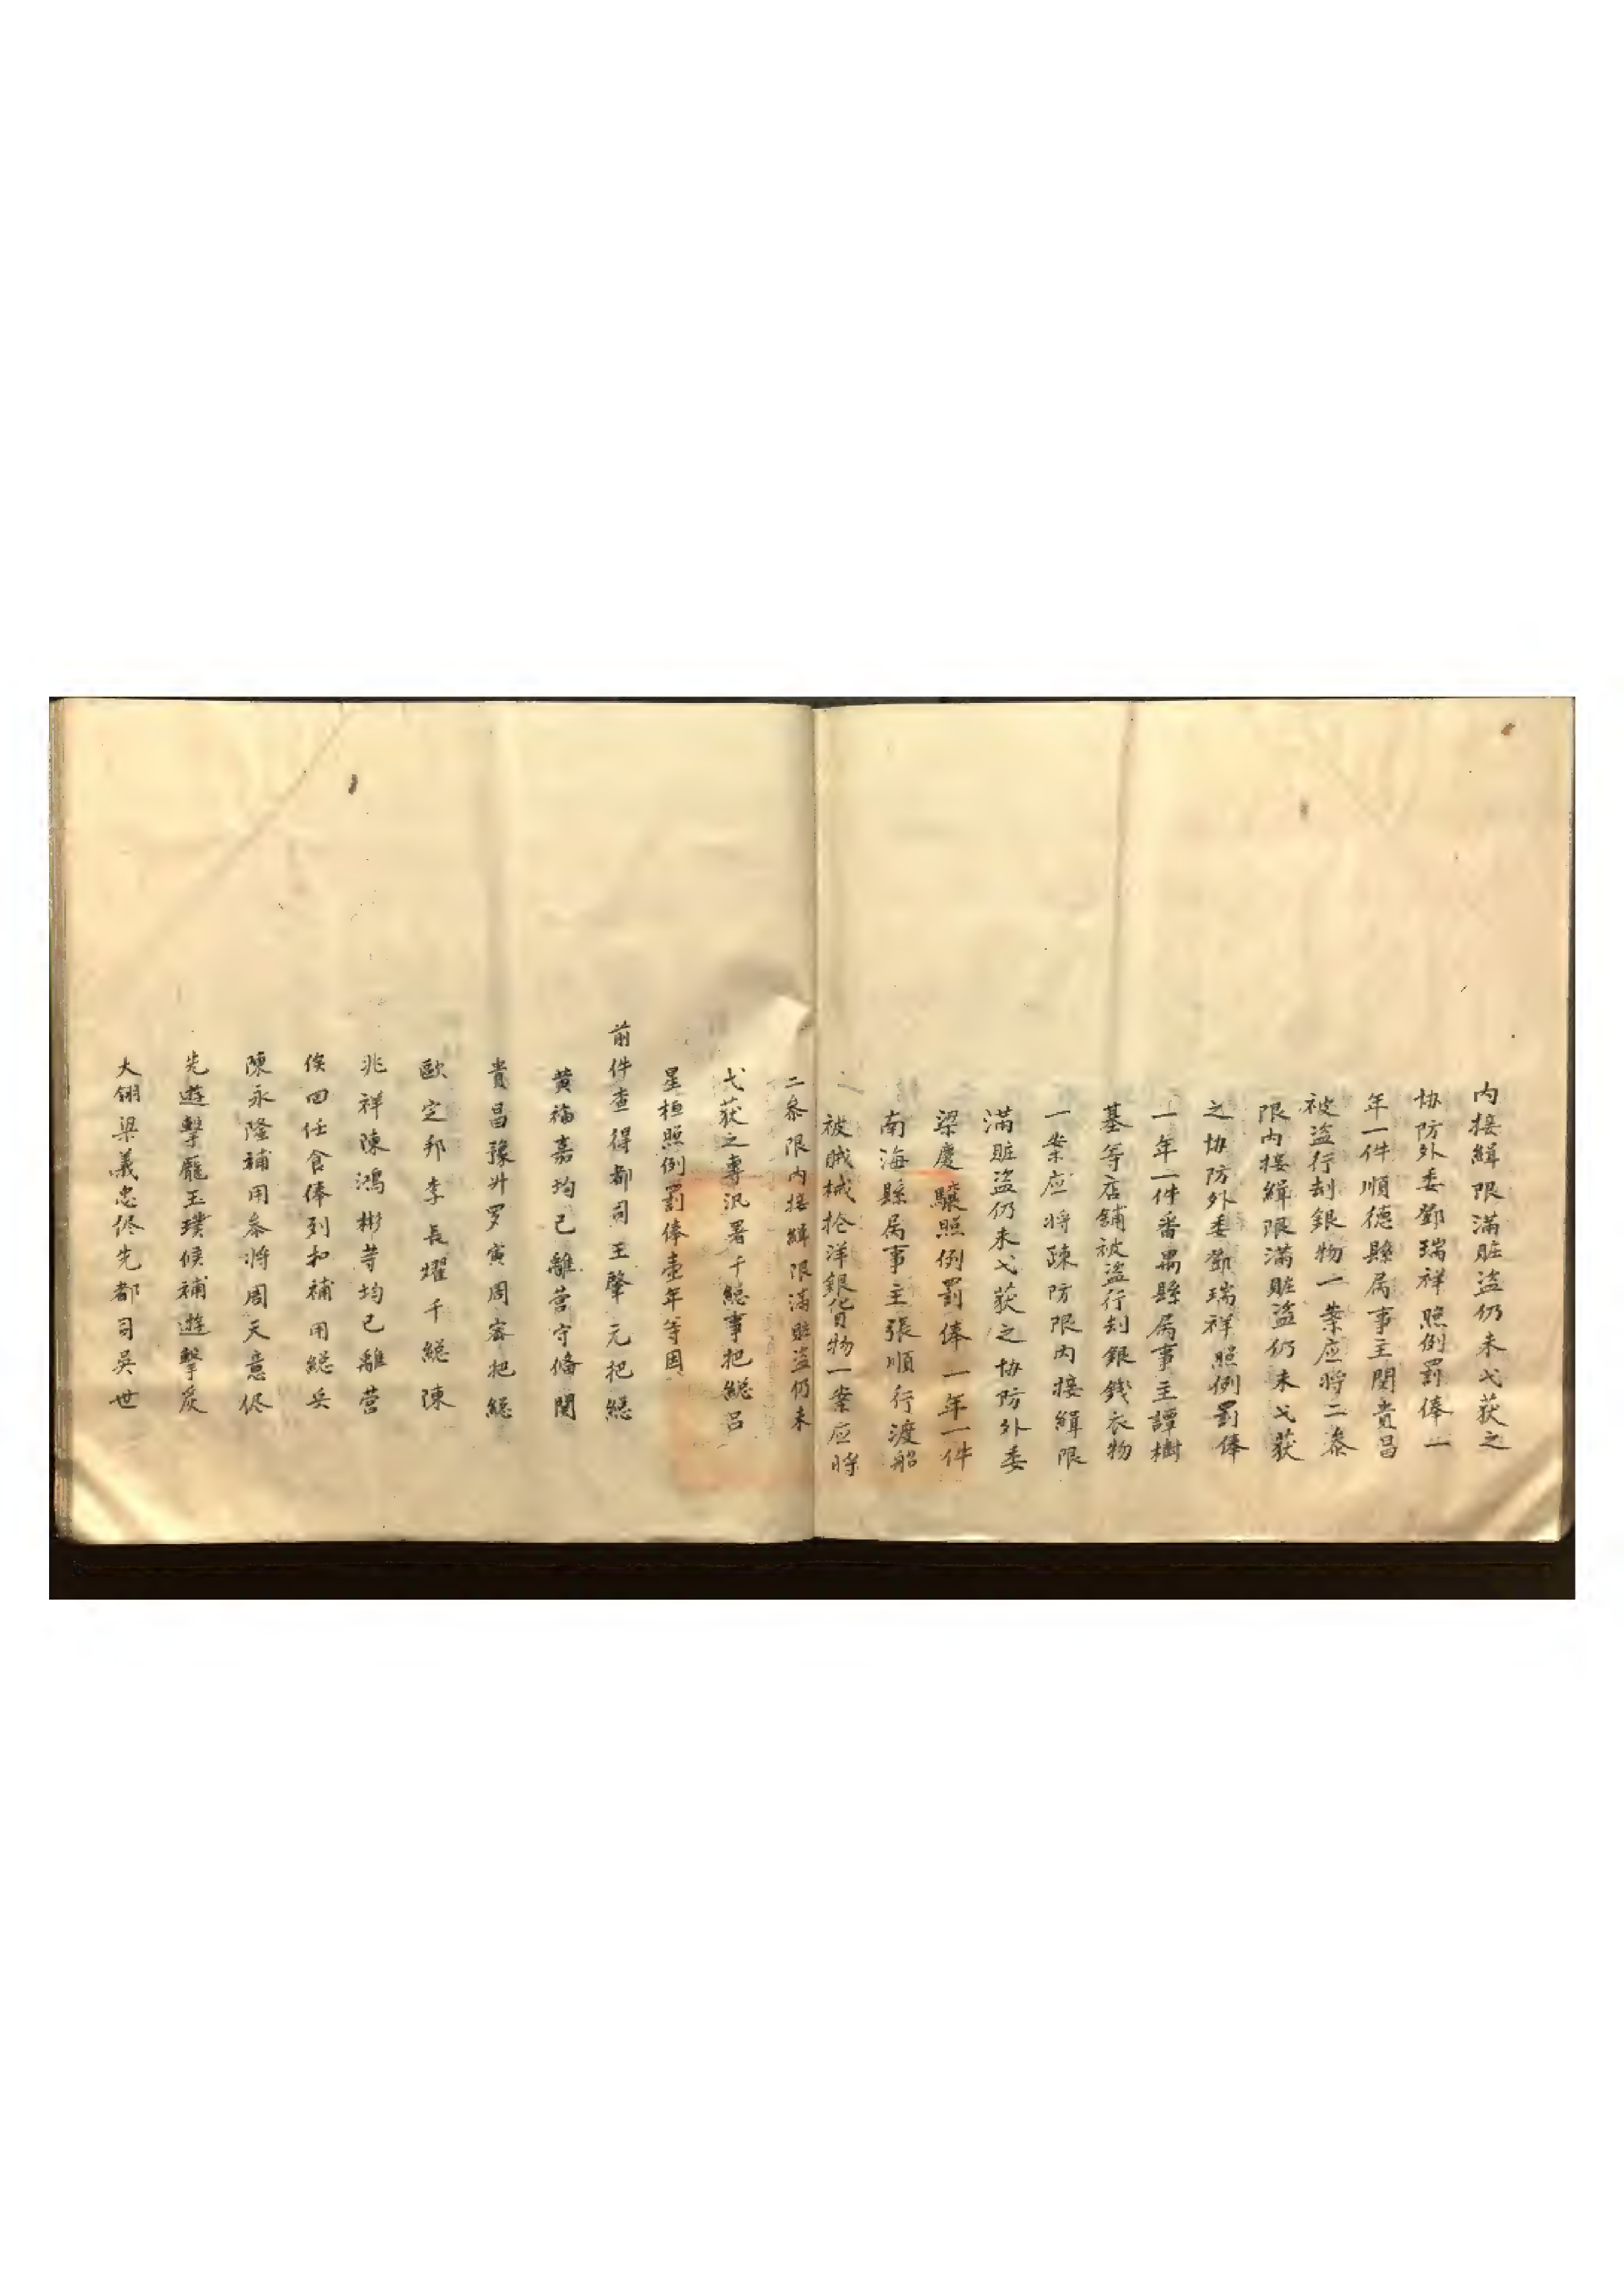 内接緝限滿賍盗仍未弋获之
协防外委鄧瑞祥照例罰俸一
年一件順德縣属事主関貴昌
被盗行刼銀物一案应將二叅
限内接緝限滿賍盗仍未弋获
之协防外委鄧瑞祥照例罰俸
一年一件番禺縣属事主譚樹
基等店舖被盗行刦銀錢衣物
一案应將疎防限内接緝限
滿賍盗仍未弋获之协防外委
梁慶驤照例罰俸一年一件
南海縣属事主張順行渡船
被賊械抢洋銀貨物一案应將
二叅限内接緝限滿賍盗仍未
弋获之專汛署千総事把総呂
星桓照例罰俸壹年等因
前件查得都司王肇元把総
黄福嘉均已離营守俻関
貴昌豫升罗寅周寀把総
歐定邦李長燿千総陳
兆祥陳鴻彬等均已離营
俟回任食俸列扣補用総兵
陳永隆補用叅將周天意侭
先遊擊龐玉璞候補遊擊
大翎梁義忠侭先都司吳世